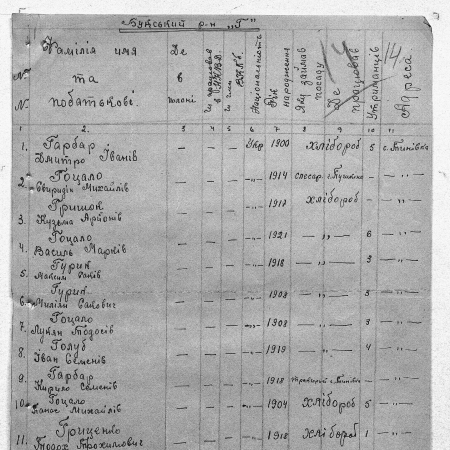 Букський р-н „Г"
14
№ № Фамілія имя та побатькові. Де в полоні Чи працював в НКВД. Чи член ВКПб. Національність Рік народження Яку займав посаду Де працював Утриманців Адреса
1 2. 3 4 5 6 7 8 9 10 11
1. Гарбар Дмитро Іванів — — — Укр 1900 Хлібороб 5 с. Тинівка
2. Гоцало Свиридін Михайлів — — — „ 1914 слюсар — „ —
3. Гришок Кузьма Артонів — — — „ 1917 Хлібороб — „ —
4. Гоцало Василь Марків — — — „ 1921 — „ — 6 — „ —
5. Гурик Максим — — — „ 1918 — „ — 3 — „ —
6. Гурик Пиліп Савович — — — „ 1903 — „ — 5 — „ —
7. Гоцало Лукян Тодосів — — — „ 1903 — „ — 3 — „ —
8. Голуб Іван Семенів — — — „ 1919 — „ — 4 — „ —
9. Гарбар Кирило Семенів — — — „ 1918 — „ —
10. Гоцало Панас Михайлів — — — „ 1904 Хлібороб 5 — „ —
11. Гриценко Тодох Трохимович — — — „ 1918 Хлібороб 1 — „ —